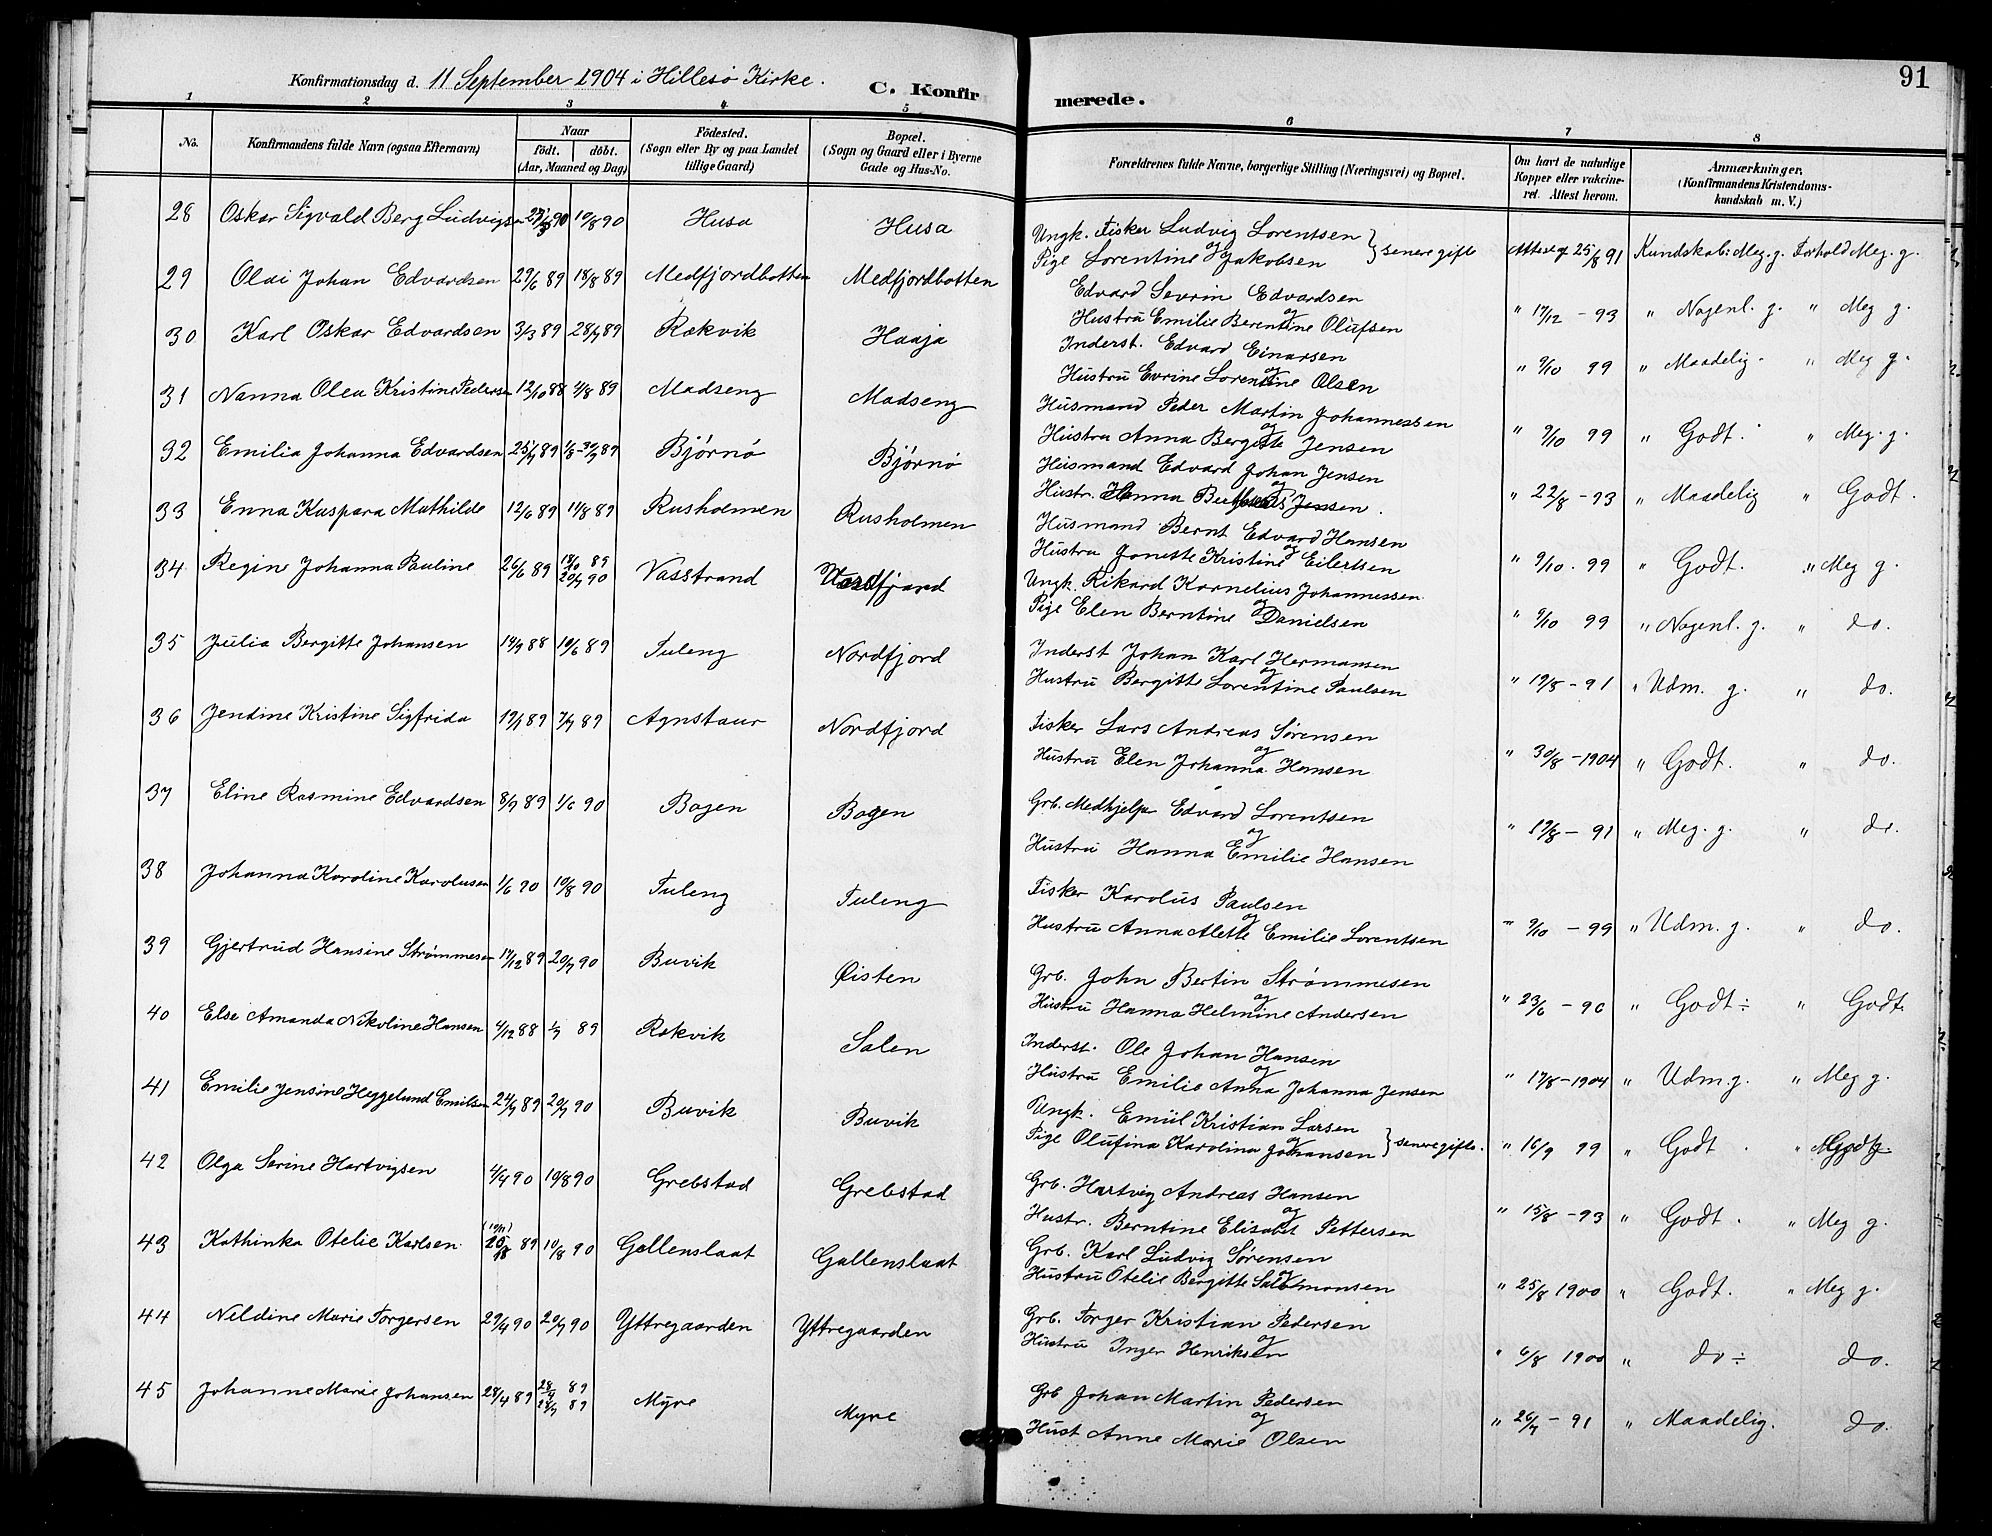 91
Konfirmationsdag d. 11 September 1904 i Hillesø Kirke.
C. Konfirmerede.
1 2 3 4 5 6 7 8
No. Konfirmandens fulde Navn (ogsaa Efternavn) Naar födt. döbt. (Aar, Maaned og Dag) Födested. (Sogn eller By og paa Landet tillige Gaard) Bopæl. (Sogn og Gaard eller i Byerne Gade og Hus-No. Forældrenes fulde Navne, borgerlige Stilling (Næringsvei) og Bopæl. Om havt de naturlige Kopper eller vakcineret. Attest herom. Anmærkninger. (Konfirmandens Kristendomskundskab m. V.)
28 Oskar Sigvald Berg Ludvigsen 90 10/8 90 Husa Husa Ungk. Fisker Ludvig Lorentsen og Pige Lorentine Jakobsen } senere gifte Attest af 25/8 91 Kundskab: Meg. g. Forhold Meg. g.
29 Olai Johan Edvardsen 29/6 89 18/8 89 Medfjordbotten Medfjordbotten Edvard Sevrin Edvardsen og Hustru Emilie Berentine Olufsen " 17/12 - 93 " Nogenl. g. " Meg g.
30 Karl Oskar Edvardsen 3/3 89 28/7 89 Rekvik Haaja Inderst. Edvard Einarsen og Hustru Evrine Lorentine Olsen " 9/10 99 " Maadelig " Meg g.
31 Nanna Olea Kristine Peders 12/10 88 4/8 89 Madseng Madseng Husmand Peder Martin Johannessen og Hustru Anna Bergitte Jensen " 9/10 99 " Godt. " Meg. g.
32 Emilia Johanna Edvardsen 25/7 89 1/8-30/7 89 Bjørnø Bjørnø Husmand Edvard Johan Jensen og Hustr. Hanna Jensen. " 22/8 - 93 " Maadelig " Godt.
33 Enna Kaspara Mathilde 12/6 89 11/8 89 Rusholmen Rusholmen Husmand Bernt Edvard Hansen og Hustru Jonette Kristine Eilertsen " 9/10. 99 " Godt. " Meg g.
34 Regine Johanna Pauline 26/6 89 13/10 89 20/7 90 Vasstrand Nordfjord Ungk. Rikard Kornelius Johannessen og Pige Elen Berntine Danielsen " 9/10 99 " Nogenl. g. " do.
35 Julia Bergitte Johansen 14/9 88 10/6 89 Tuleng Nordfjord Inderst Johan Karl Hermansen og Hustru Bergitte Lorentine Paulsen " 19/8 - 91 " Udm. g. " do.
36 Jendine Kristine Sigfrida 19/1 89 7/7 89 Agnstaur Nordfjord Fisker Lars Andreas Sørensen og Hustru Elen Johanna Hansen " 30/8 - 1904 " Godt. " do.
37 Eline Rasmine Edvardsen 8/9 89 1/6 90 Bogen Bogen Grb. Medhjelper Edvard Lorentsen og Hustru Hanna Emilie Hansen " 19/8 - 91 " Meg. g. " do.
38 Johanna Karoline Karolusen 1/6 90 10/8 90 Tuleng Tuleng Fisker Karolus Paulsen og Hustru Anna Alette Emilie Lorentsen " 9/10 - 99 " Udm. g. " do.
39 Gjertrud Hansine Strømmesen 17/12 89 20/7 90 Buvik Øisten Grb. John Bertin Strømmesen og Hustru Hanna Helmine Andersen " 23/6 - 90 " Godt ÷ " Godt.
40 Else Amanda Nikoline Hansen 4/12 88 1/7 89 Rekvik Salen Inderst. Ole Johan Hansen og Hustru Emilie Anna Johanna Jensen " 17/8 - 1904 " Udm g. " Meg g.
41 Emilie Jensine Heggelund Emilsen 24/9 89 20/7 90 Buvik Buvik Ungk. Emiil Kristian Larsen og Pige Olufina Karolina Johansen } senere gifte. " 16/9 99 " Godt. "
42 Olga Serine Hartvigsen 4/4 90 10/8 90 Grebstad Grebstad Grb. Hartvig Andreas Hansen og Hustr. Berntine Elisabet Pettersen " 15/8 - 93 " Godt. " Meg g.
43 Kathinka Otelie Karlsen 89 10/8 90 Gallenslaat Gallenslaat Grb. Karl Ludvig Sørensen og Hustru Otelie Bergitte Salomonsen " 25/8 1900 " Godt. " Meg g.
44 Nildine Marie Torgersen 29/4 90 20/7 90 Yttregaarden Yttregaarden Grb. Torger Kristian Pedersen og Hustru Inger Henriksen " 6/8 1900 " do ÷ do.
45 Johanne Marie Johansen 28/4 89 89 28/7 89 Myre Myre Grb Johan Martin Pedersen og Hust Anne Marie Olsen " 26/7 - 91 " Maadelig. do.